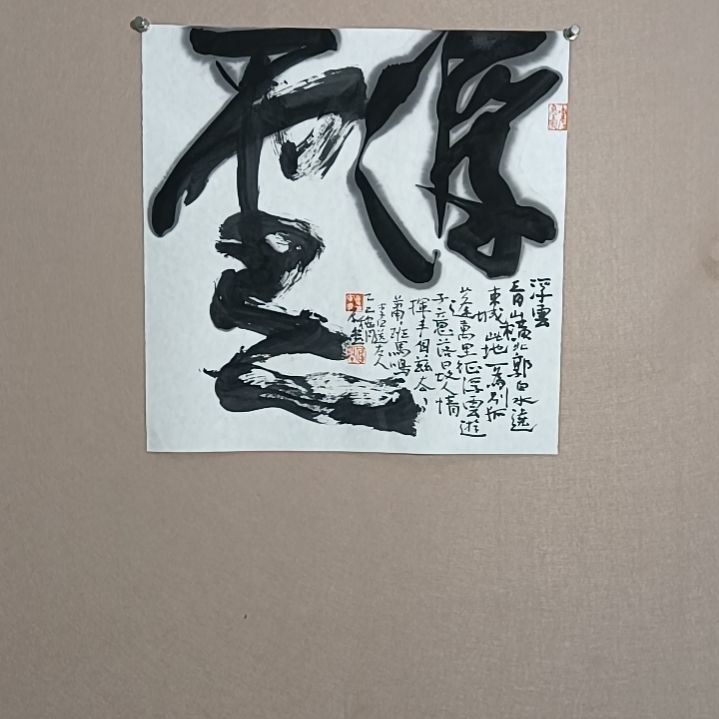 浮雲
浮雲
青山橫北郭白水遶
東城此地一為別孤
蓬萬里征浮雲遊
子意落日故人情
揮手自茲去
蕭班馬鳴
李白送友人
乙巳